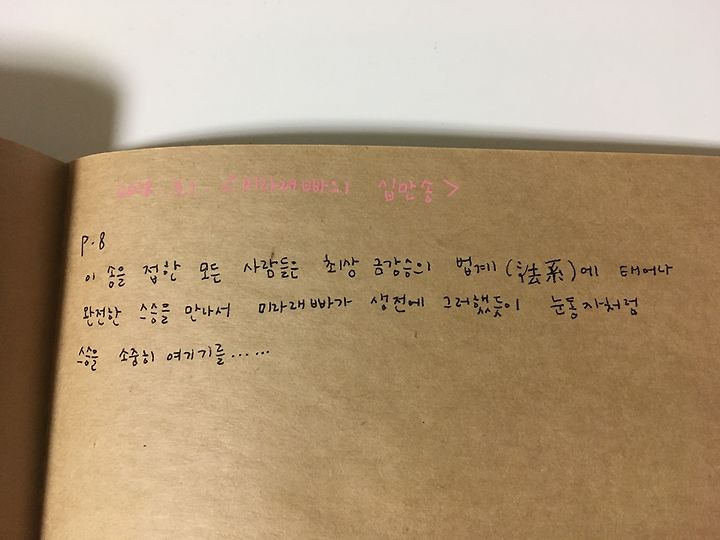 2018. 3.1. <미라래빠의 십만송>
p.8
이 송을 접한 모든 사람들은 최상 금강승의 법계(法系)에 태어나
완전한 스승을 만나서 미라래빠가 생전에 그러했듯이 눈동자처럼
스승을 소중히 여기기를......